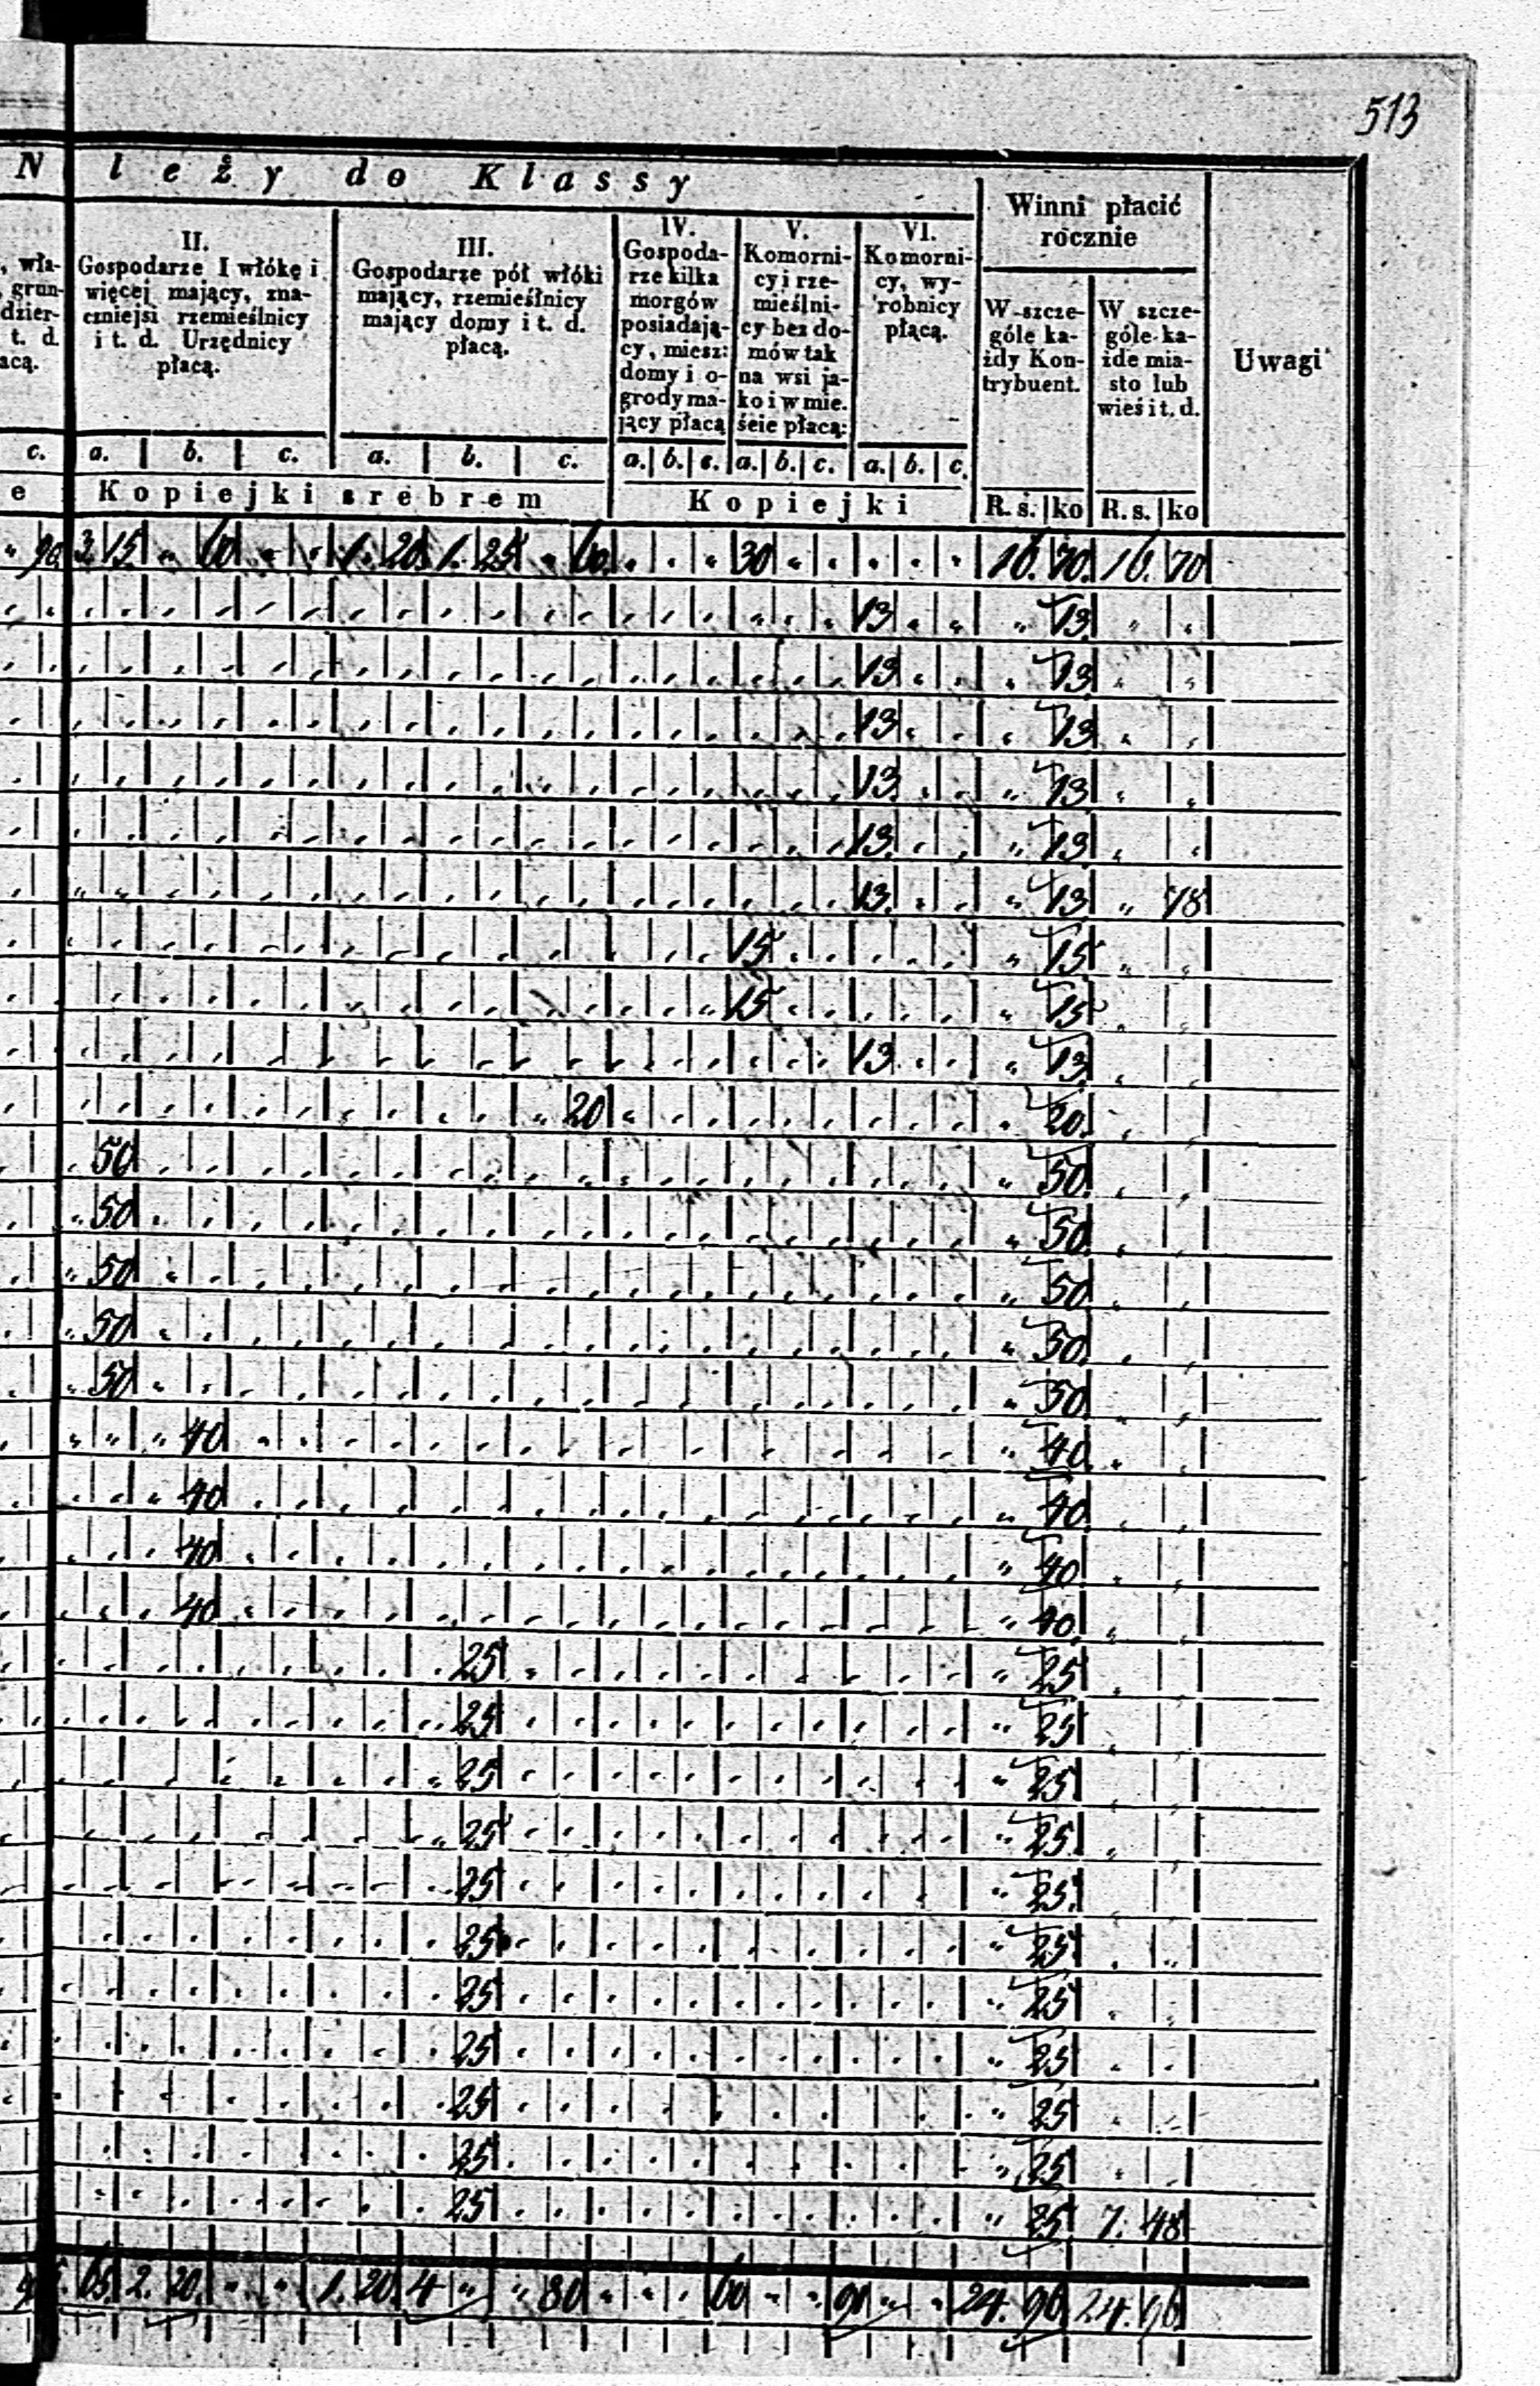 513
N leży do Klassy
Winni płacić
rocznie
Uwagi
, wła-
, grun-
dzier-
t. d.
acą.
II.
Gospodarze I włókę i
więcej mający, zna-
czniejsi rzemieślnicy
i t. d. Urzędnicy
płacą.
III.
Gospodarze pół włóki
mający, rzemieślnicy
mający domy i t. d.
płacą.
IV.
Gospoda-
rze kilka
morgów
posiadają-
cy, miesz:
domy i o-
grody ma-
jący płacą
V.
Komorni-
cy i rze-
mieślni-
cy bez do-
mów tak
na wsi ja-
ko i w mie.
ście płacą:
VI.
Komorni-
cy, wy-
robnicy
płacą.
W szcze-
góle ka-
żdy Kon-
trybuent.
W szcze-
góle ka-
żde mia-
sto lub
wieś i t. d.
c. a. b. c. a. b. c. a. b. c. a. b. c. a. b. c.
e Kopiejki srebrem Kopiejki R. s. ko R. s. ko
" 90 3 15 " 60 " " 1. 20 1. 25 " 60 . . . " 30 " . . . . . 16. 70. 16. 70
13 " 13 " "
13 " 13 " "
13 " 13 " "
13 " 13 " "
13 " 13 " "
13 " 13 " 78
15 " 15 " "
15 " 15 " "
13 " 13 " "
20 " 20 " "
50 " 50 " "
50 " 50 " "
50 " 50 " "
50 " 50 " "
50 " 50 " "
40 " 40 " "
40 " 40 " "
40 " 40 " "
40 " 40 " "
25 " 25
25 " 25
25 " 25
25 " 25
25 " 25
25 " 25
25 " 25
25 " 25
25 " 25
25 " 25
25 " 25 7. 48
65 2. 20. " " 1. 20 4 " " 80 " " . 60 " " 91 " " 24. 96 24. 96